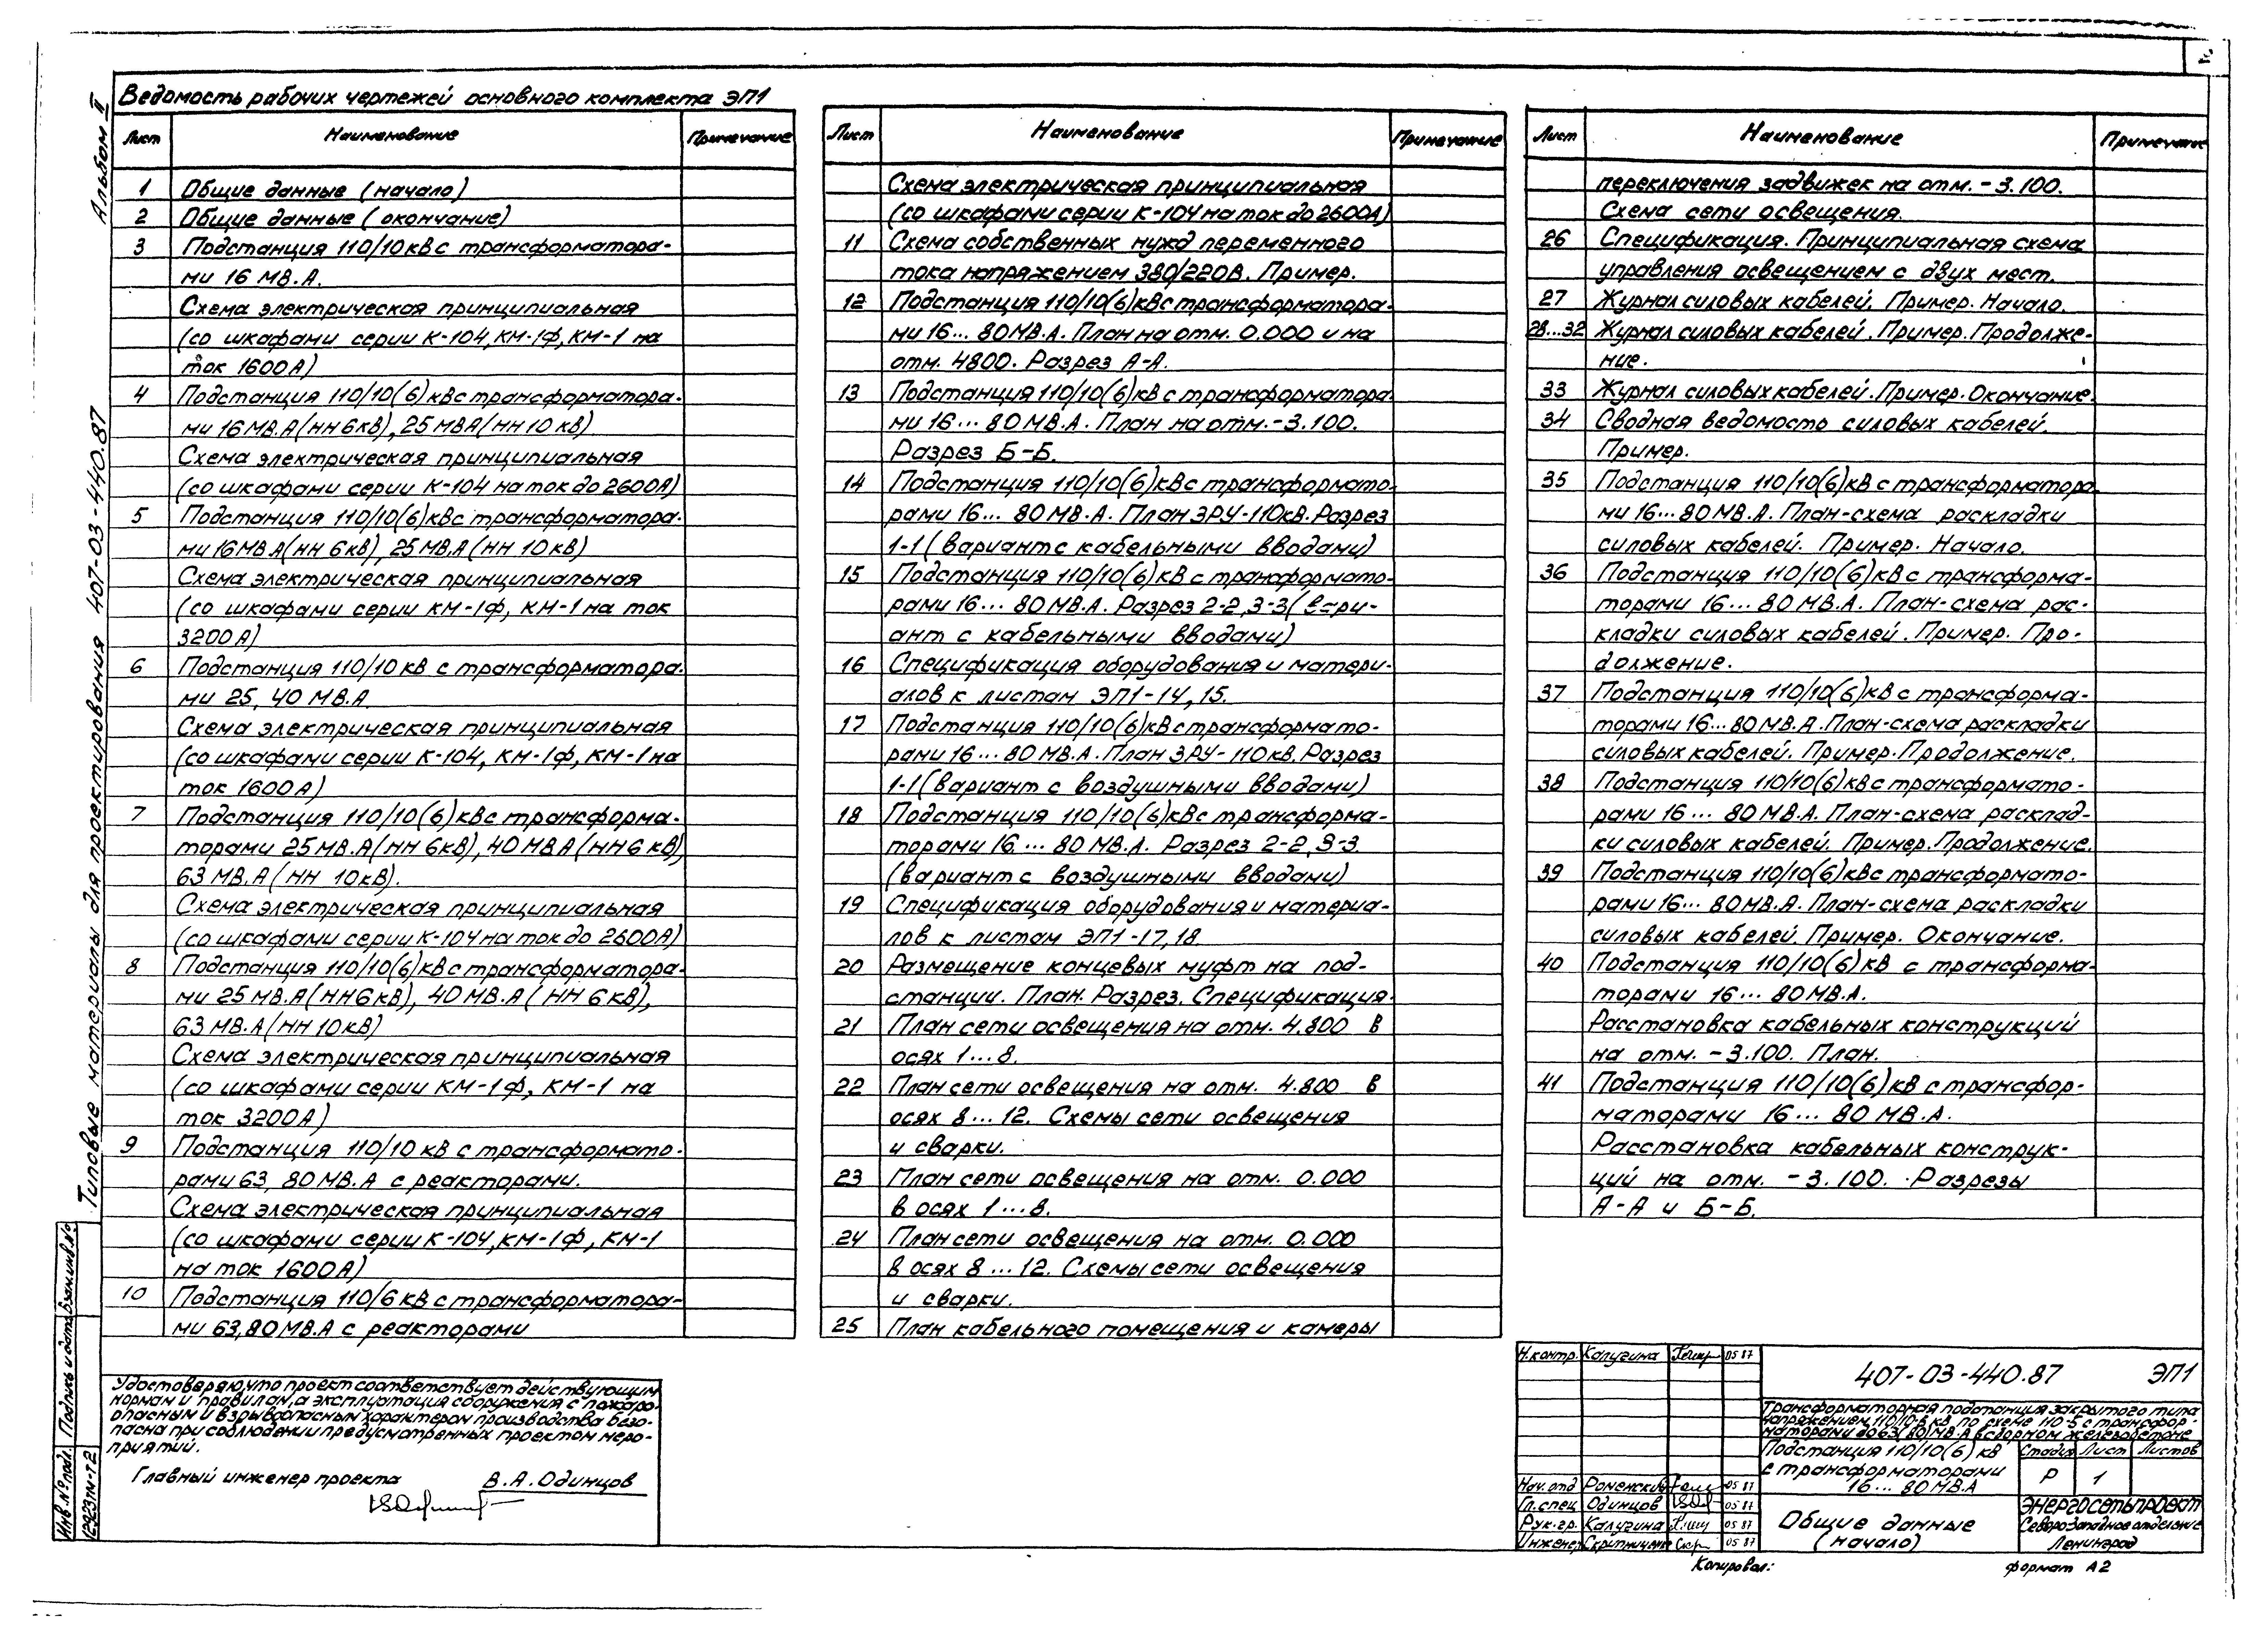 Альбом II
Типовые материалы для проектирования 407-03-440.87
Ведомость рабочих чертежей основного комплекта ЭП1
Лист Наименование Примечание
1 Общие данные (начало)
2 Общие данные (окончание)
3 Подстанция 110/10кВ с трансформатора-
ми 16 МВ.А.
Схема электрическая принципиальная
(со шкафами серии К-104, КМ-1Ф, КМ-1 на
ток 1600А)
4 Подстанция 110/10(6)кВ с трансформатора-
ми 16МВ.А(НН 6кВ), 25МВА(НН 10кВ)
Схема электрическая принципиальная
(со шкафами серии К-104 на ток до 2600А)
5 Подстанция 110/10(6)кВ с трансформатора-
ми 16МВА(НН 6кВ), 25МВ.А(НН 10кВ)
Схема электрическая принципиальная
(со шкафами серии КМ-1Ф, КМ-1 на ток
3200А)
6 Подстанция 110/10 кВ с трансформатора-
ми 25, 40 МВ.А.
Схема электрическая принципиальная
(со шкафами серии К-104, КМ-1Ф, КМ-1 на
ток 1600А)
7 Подстанция 110/10(6)кВ с трансформа-
торами 25МВ.А(НН 6кВ), 40МВА(НН6кВ),
63 МВ.А(НН 10кВ).
Схема электрическая принципиальная
(со шкафами серии К-104 на ток до 2600А)
8 Подстанция 110/10(6)кВ с трансформатора-
ми 25 МВ.А(НН6кВ), 40МВ.А(НН 6кВ),
63 МВ.А(НН 10кВ)
Схема электрическая принципиальная
(со шкафами серии КМ-1Ф, КМ-1 на
ток 3200А)
9 Подстанция 110/10 кВ с трансформато-
рами 63, 80МВ.А с реакторами.
Схема электрическая принципиальная
(со шкафами серии К-104, КМ-1Ф, КМ-1
на ток 1600А)
10 Подстанция 110/6 кВ с трансформатора-
ми 63,80МВ.А с реакторами
Лист Наименование Примечание
Схема электрическая принципиальная
(со шкафами серии К-104 на ток до 2600А)
11 Схема собственных нужд переменного
тока напряжением 380/220В. Пример.
12 Подстанция 110/10(6)кВ с трансформатора-
ми 16... 80МВ.А. План на отм. 0.000 и на
отм. 4800. Разрез А-А.
13 Подстанция 110/10(6)кВ с трансформатора-
ми 16... 80МВ.А. План на отм.-3.100.
Разрез Б-Б.
14 Подстанция 110/10(6)кВ с трансформато-
рами 16... 80МВ.А. План ЗРУ-110кВ. Разрез
1-1 (вариант с кабельными вводами)
15 Подстанция 110/10(6)кВ с трансформато-
рами 16... 80МВ.А. Разрез 2-2, 3-3 (вари-
ант с кабельными вводами)
16 Спецификация оборудования и матери-
алов к листам ЭП1-14, 15.
17 Подстанция 110/10(6)кВ с трансформато-
рами 16... 80МВ.А. План ЗРУ-110кВ. Разрез
1-1 (вариант с воздушными вводами)
18 Подстанция 110/10(6)кВ с трансформа-
торами 16... 80МВ.А. Разрез 2-2, 3-3.
(вариант с воздушными вводами)
19 Спецификация оборудования и материа-
лов к листам ЭП1-17, 18.
20 Размещение концевых муфт на под-
станции. План. Разрез. Спецификация.
21 План сети освещения на отм. 4.800 в
осях 1...8.
22 План сети освещения на отм. 4.800 в
осях 8...12. Схемы сети освещения
и сварки.
23 План сети освещения на отм. 0.000
в осях 1...8.
24 План сети освещения на отм. 0.000
в осях 8...12. Схемы сети освещения
и сварки.
25 План кабельного помещения и камеры
Лист Наименование Примечание
переключения задвижек на отм. -3.100.
Схема сети освещения.
26 Спецификация. Принципиальная схема
управления освещением с двух мест.
27 Журнал силовых кабелей. Пример. Начало.
28...32 Журнал силовых кабелей. Пример. Продолже-
ние.
33 Журнал силовых кабелей. Пример. Окончание.
34 Сводная ведомость силовых кабелей.
Пример.
35 Подстанция 110/10(6)кВ с трансформатора-
ми 16...80МВ.А. План-схема раскладки
силовых кабелей. Пример. Начало.
36 Подстанция 110/10(6)кВ с трансформа-
торами 16... 80МВ.А. План-схема рас-
кладки силовых кабелей. Пример. Про-
должение.
37 Подстанция 110/10(6)кВ с трансформа-
торами 16...80МВ.А. План-схема раскладки
силовых кабелей. Пример. Продолжение.
38 Подстанция 110/10(6)кВ с трансформато-
рами 16... 80МВ.А. План-схема расклад-
ки силовых кабелей. Пример. Продолжение.
39 Подстанция 110/10(6)кВ с трансформато-
рами 16... 80МВ.А. План-схема раскладки
силовых кабелей. Пример. Окончание.
40 Подстанция 110/10(6)кВ с трансформа-
торами 16... 80МВ.А.
Расстановка кабельных конструкций
на отм. -3.100. План.
41 Подстанция 110/10(6)кВ с трансфор-
маторами 16... 80 МВ.А.
Расстановка кабельных конструк-
ций на отм. -3.100. Разрезы
А-А и Б-Б.
Удостоверяю, что проект соответствует действующим
нормам и правилам, а эксплуатация сооружения с пожаро-
опасным и взрывоопасным характером производства безо-
пасна при соблюдении предусмотренных проектом меро-
приятий.
Главный инженер проекта В.А.Одинцов
Инв.№ подл. Подпись и дата Взам.инв.№
12923тм-т2
Н.контр. Калугина 05 87
Нач.отд Роменский 05 87
Гл.спец Одинцов 05 87
Рук.гр. Калугина 05 87
Инженер 05 87
407-03-440.87 ЭП1
Трансформаторная подстанция закрытого типа
напряжением 110/10-6 кВ по схеме 110-5 с трансфор-
маторами до 63(80)МВ.А в сборном железобетоне
Подстанция 110/10(6) кВ
с трансформаторами
16... 80МВ.А
Стадия Лист Листов
Р 1
Общие данные
(начало)
ЭНЕРГОСЕТЬПРОЕКТ
Северо-Западное отделение
Ленинград
Копировал:
формат А2